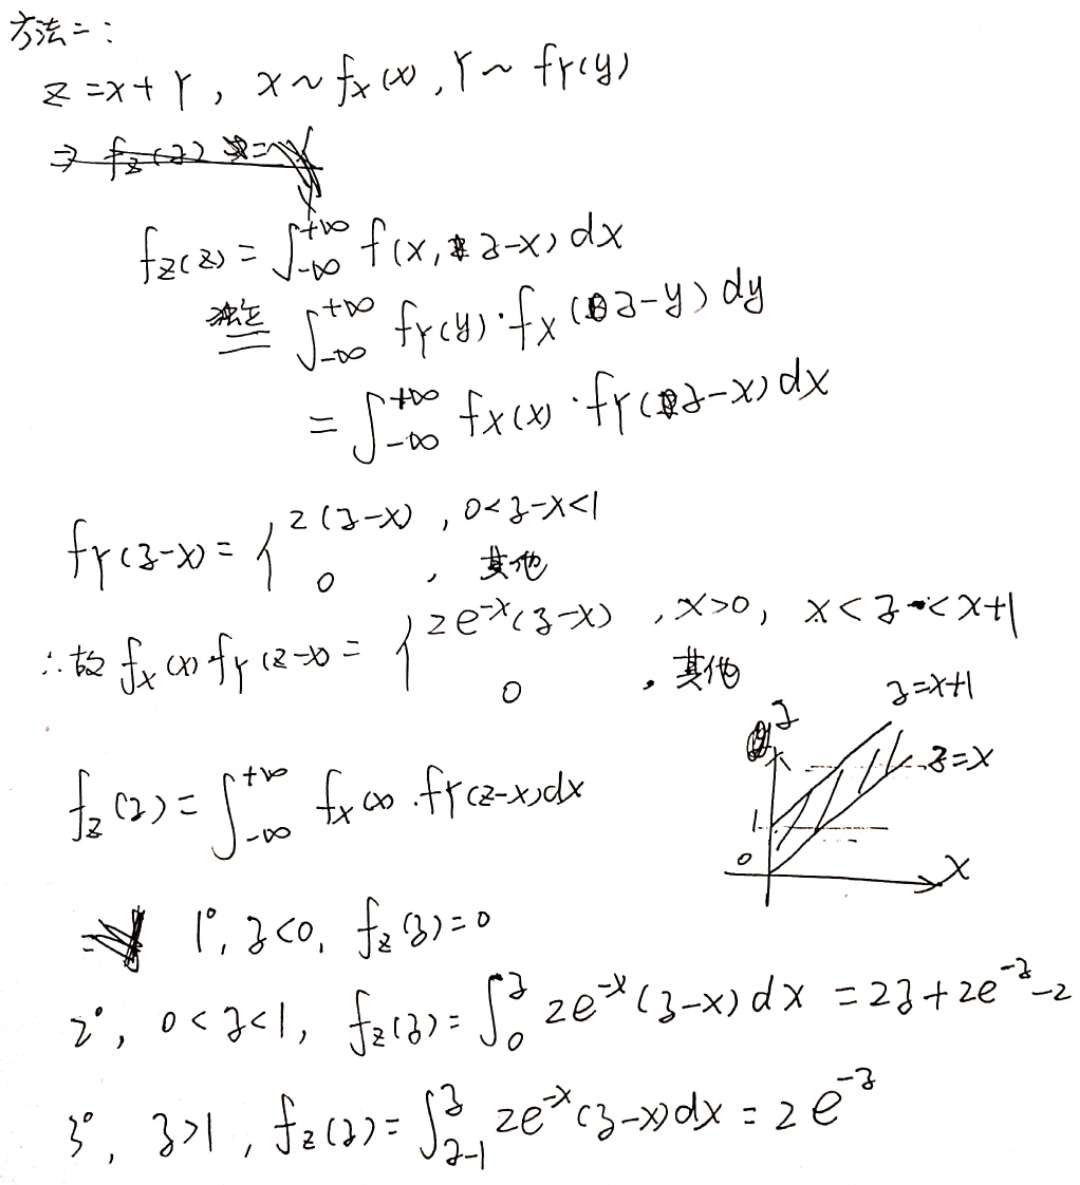 方法二:
Z=X+Y, X~f_X(x), Y~f_Y(y)
⇒ f_Z(z)
f_Z(z) = ∫_{-∞}^{+∞} f(x, z-x) dx
独立 = ∫_{-∞}^{+∞} f_Y(y)·f_X(z-y) dy
= ∫_{-∞}^{+∞} f_X(x)·f_Y(z-x) dx
f_Y(z-x) = { 2(z-x), 0<z-x<1
0, 其他
∴故 f_X(x)·f_Y(z-x) = { 2e^{-x}(z-x), x>0, x<z<x+1
0, 其他
z=x+1
z
z=x
1
0
x
f_Z(z) = ∫_{-∞}^{+∞} f_X(x)·f_Y(z-x)dx
1°, z<0, f_Z(z)=0
2°, 0<z<1, f_Z(z)=∫_0^z 2e^{-x}(z-x)dx = 2z+2e^{-z}-2
3°, z>1, f_Z(z)=∫_{z-1}^z 2e^{-x}(z-x)dx = 2e^{-z}